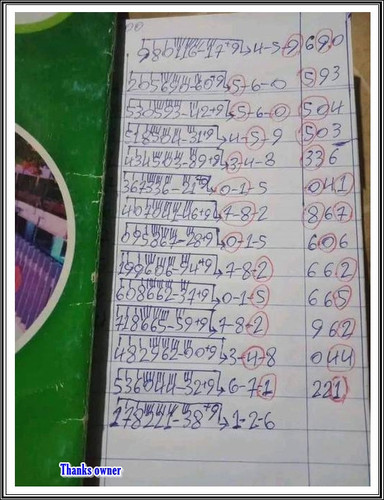 00
980116-17+9 4-5-9 690
205690-60+9 5-6-0 593
530593-42+9 5-6-0 504
518504-31+9 4-5-9 503
434503-39+9 3-4-8 336
367336-21+9 0-1-5 041
407041-46+9 7-8-2 867
095867-28+9 0-1-5 606
199606-54+9 7-8-2 662
608662-37+9 0-1-5 665
718665-59+9 7-8-2 962
482962-00+9 3-4-8 044
536044-32+9 6-7-1 221
178221-38+9 1-2-6
Thanks owner